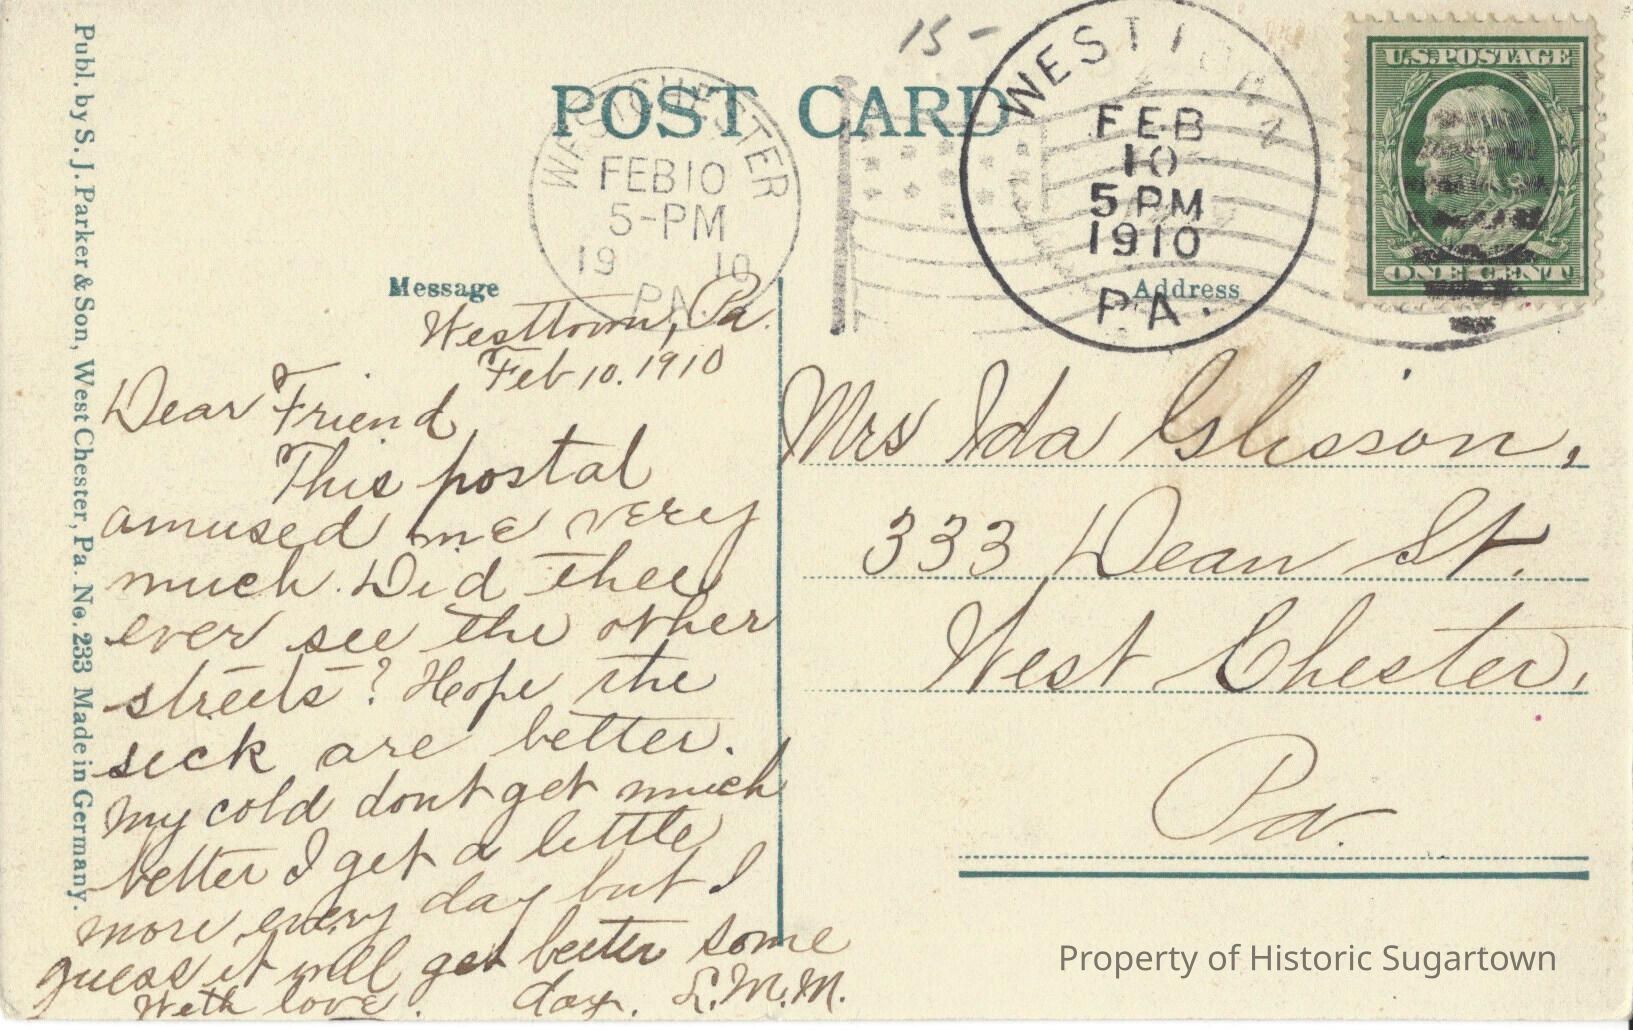 15-
POST CARD
WEST CHESTER
FEB 10
5-PM
19 10
PA.
WESTTOWN
FEB
10
5 PM
1910
PA.
U.S. POSTAGE
ONE CENT
Publ. by S. J. Parker & Son, West Chester, Pa. No. 233 Made in Germany.
Message
Westtown, Pa.
Feb 10. 1910
Dear Friend
This postal
amused me very
much. Did thee
ever see the other
streets? Hope the
sick are better.
My cold dont get much
better I get a little
more every day but I
guess it will get better some
With love. day. L.M.M.
Address
Mrs Ida Glisson,
333 Dean St.
West Chester,
Pa.
Property of Historic Sugartown